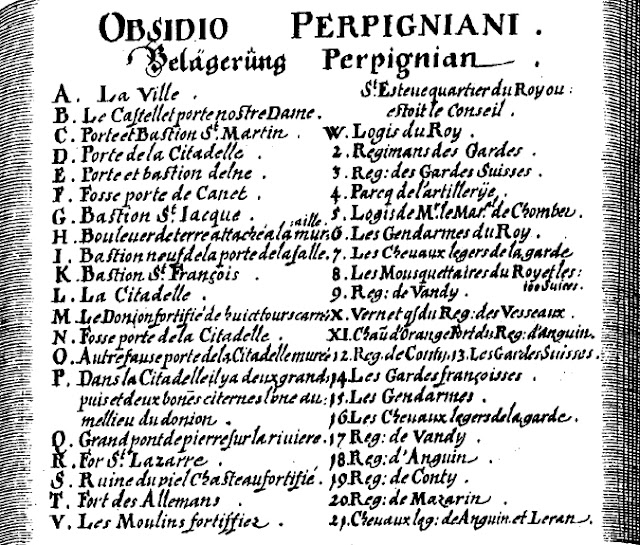 OBSIDIO PERPIGNIANI .
Belägerüng Perpignian .
A . La Ville .
B . Le Castellet porte nostre Dame .
C . Porte et Bastion St. Martin .
D . Porte de la Citadelle .
E . Porte et bastion delne .
F . Fosse porte de Canet .
G . Bastion St. Iacque .
H . Bouleuer de terre attaché a la muraille .
I . Bastion neuf de la porte de la salle .
K . Bastion St. François .
L . La Citadelle .
M . Le Donjon fortifié de huict tours carré
N . Fosse porte de la Citadelle .
O . Autre fause porte de la Citadelle murée
P . Dans la Citadelle il y a deux grands
puis et deux bones citernes l'one au
mellieu du donion .
Q . Grand pont de pierre sur la riuiere .
R . For St. Lazarre .
S . Ruine du piel Chasteau fortifié .
T . Fort des Allemans .
V . Les Moulins fortiffiez .
St. Esteue quartier du Roy ou :
estoit le Conseil .
W. Logis du Roy .
2. Regimans des Gardes .
3. Reg: des Gardes Suisses .
4. Parcq de l'artillerije .
5. Logis de Mr. le Mar.al de Chomber .
6. Les Gendarmes du Roy .
7. Les Cheuaux legers de la garde
8. Les Mousquettaires du Roy et les :
100 Suices .
9. Reg: de Vandy .
X. Vernet qs du Reg: des Vesseaux .
XI. Chaũ d'Orange Port du Reg: d'anguin .
12. Reg: de Conty . 13. Les Gardes Suisses .
14. Les Gardes françoisses .
15. Les Gendarmes .
16. Les Cheuaux legers de la garde .
17 Reg: de Vandy .
18. Reg: d'Anguin .
19. Reg: de Conty .
20. Reg: de Mazarin .
21. Cheuaux leg: de Anguin et Leran .